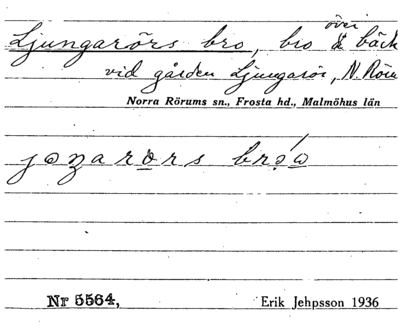 över
Ljungarörs bro, bro å bäck
vid gården Ljungarör, N. Röru
Norra Rörums sn., Frosta hd., Malmöhus län
Nr 5564, Erik Jehpsson 1936